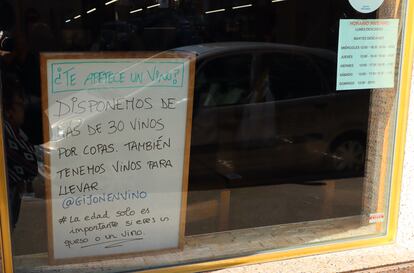 ¿TE APETECE UN VINO?
DISPONEMOS DE
MÁS DE 30 VINOS
POR COPAS. TAMBIÉN
TENEMOS VINOS PARA
LLEVAR
@GIJONENVINO
#LA EDAD SOLO ES
IMPORTANTE SI ERES UN
QUESO O UN VINO.
HORARIO
LUNES DESCANSO
MARTES DESCANSO
MIÉRCOLES
JUEVES
VIERNES
SÁBADO
DOMINGO